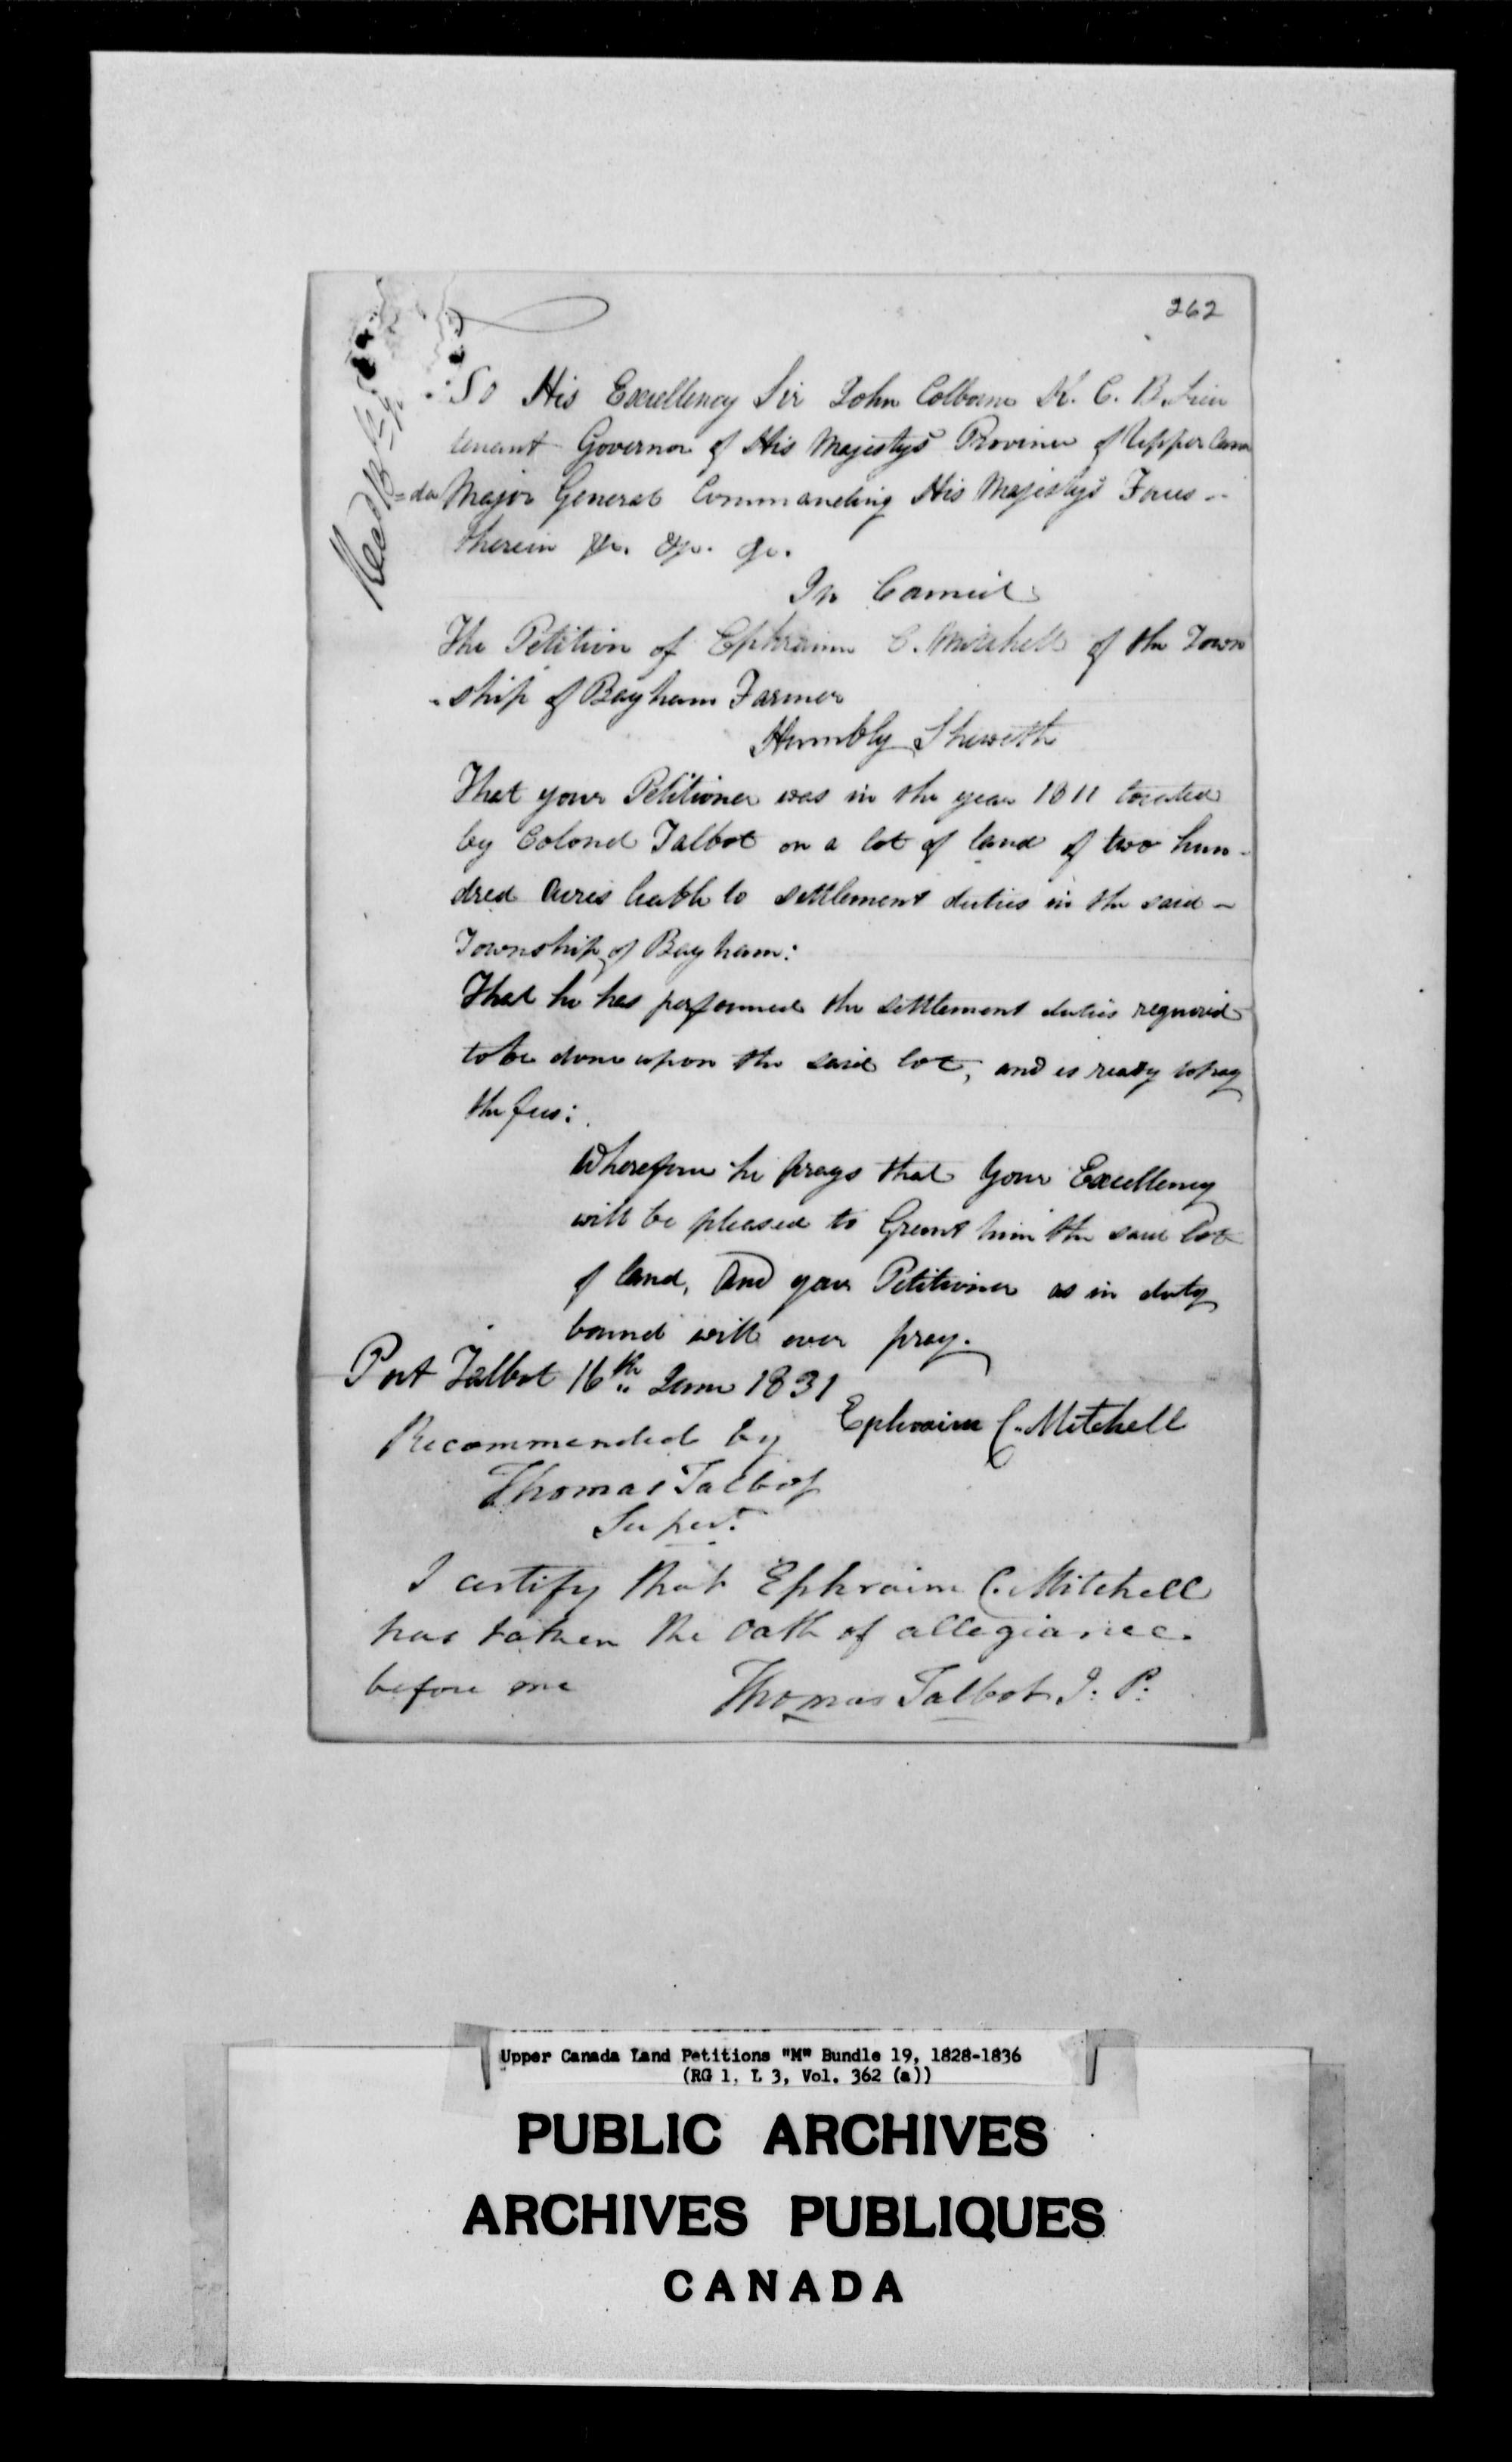 262
To His Excellency Sir John Colborne K. C. B. Lieu
tenant Governor of His Majesty's Province of Upper Cana
=da Major General Commanding His Majesty's Forces -
Therein &c. &c. &c.
In Council
The Petition of Ephraim C. Mitchell of the Town
-ship of Bayham Farmer
Humbly Sheweth
That your Petitioner was in the year 1811 located
by Colonel Talbot on a lot of land of two hun-
dred acres liable to settlement duties in the said -
Township of Bayham:
That he has performed the settlement duties required
to be done upon the said lot, and is ready to pay
the fees:
Wherefore he prays that Your Excellency
will be pleased to Grant him the said lot
of land, And your Petitioner as in duty
bound will ever pray.
Port Talbot 16th June 1831
Ephraim C. Mitchell
Recommended by
Thomas Talbot
Supert.
I certify that Ephraim C. Mitchell
has taken the oath of allegiance.
before me
Thomas Talbot J: P:
Upper Canada Land Petitions "M" Bundle 19, 1828-1836
(RG 1, L 3, Vol. 362 (a))
PUBLIC ARCHIVES
ARCHIVES PUBLIQUES
CANADA